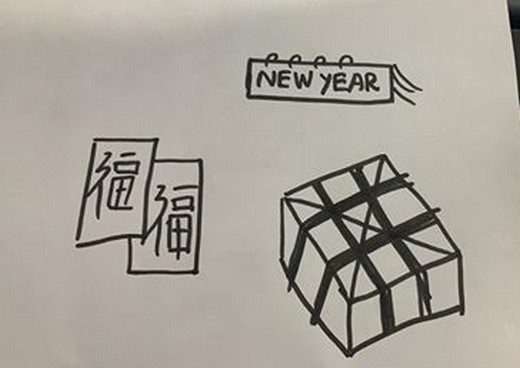 NEW YEAR
福
福